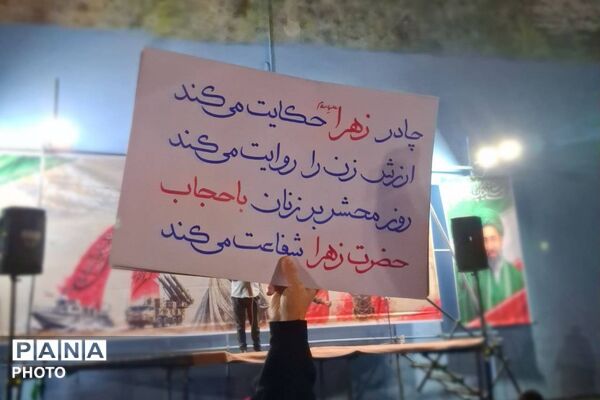 چادر زهرا حکایت می‌کند
ارزش زن را روایت می‌کند
روز محشر بر زنان باحجاب
حضرت زهرا شفاعت می‌کند
PANA
PHOTO